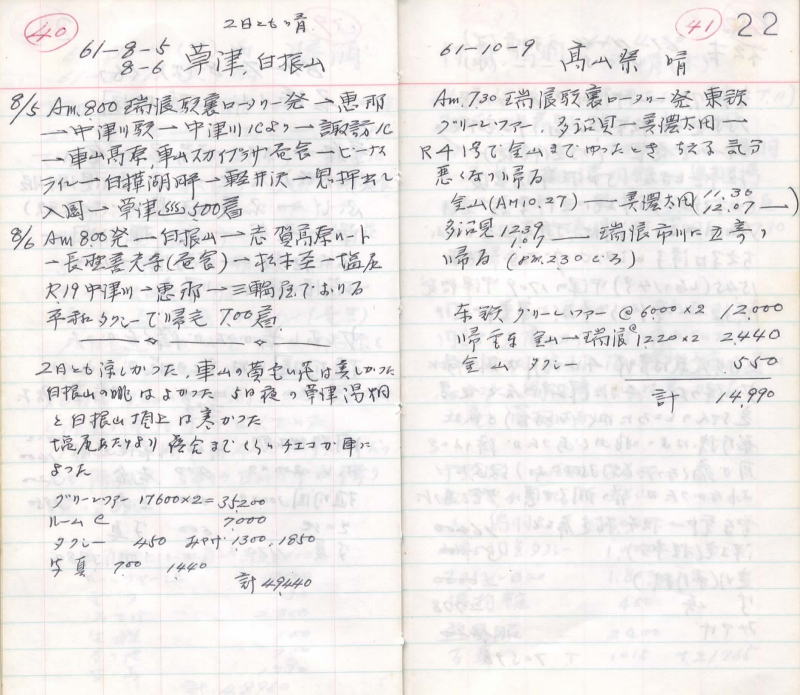 40
2日とも晴
61-8-5
8-6 草津、白根山
8/5 Am.8.00 瑞浪駅裏ロータリー発→恵那
→中津川駅→中津川ICより→諏訪IC
→車山高原、車山スカイプラザ昼食→ビーナス
ライン→白樺湖畔→軽井沢→鬼押出し
入園→草津 5.00着
8/6 Am 8.00発→白根山→志賀高原ルート
→長野善光寺(昼食)→松本 →塩尻
R19 中津川→恵那→三輪屋でおりる
平和タクシーで帰宅 7.00着
2日とも涼しかった、車山の黄色い花は美しかった
白根山の眺はよかった 5日夜の草津湯畑
と白根山頂上は寒かった
塩尻あたりより 落合まで くらいチエコが車に
よった
グリーンツアー 17600×2=35200
ルーム 7,000
タクシー 450 みやげ 1300, 1850
写真 700 1440
計 49,440
41
22
61-10-9 高山祭 晴
Am.7.30 瑞浪駅裏ロータリー発 東鉄
グリーンツアー、多治見→美濃太田→
R41号で金山までゆったとき ちえる 気分
悪くなり帰る
金山(AM10.27)→美濃太田(11.30 12.07→)
多治見 12.39 1.07 → 瑞浪市川に立寄り
帰る (Pm.2.30ごろ)
東鉄 グリーンツアー @6000×2 12,000
帰電車 金山→瑞浪@1220×2 2,440
金山 タクシー 550
計 14,990